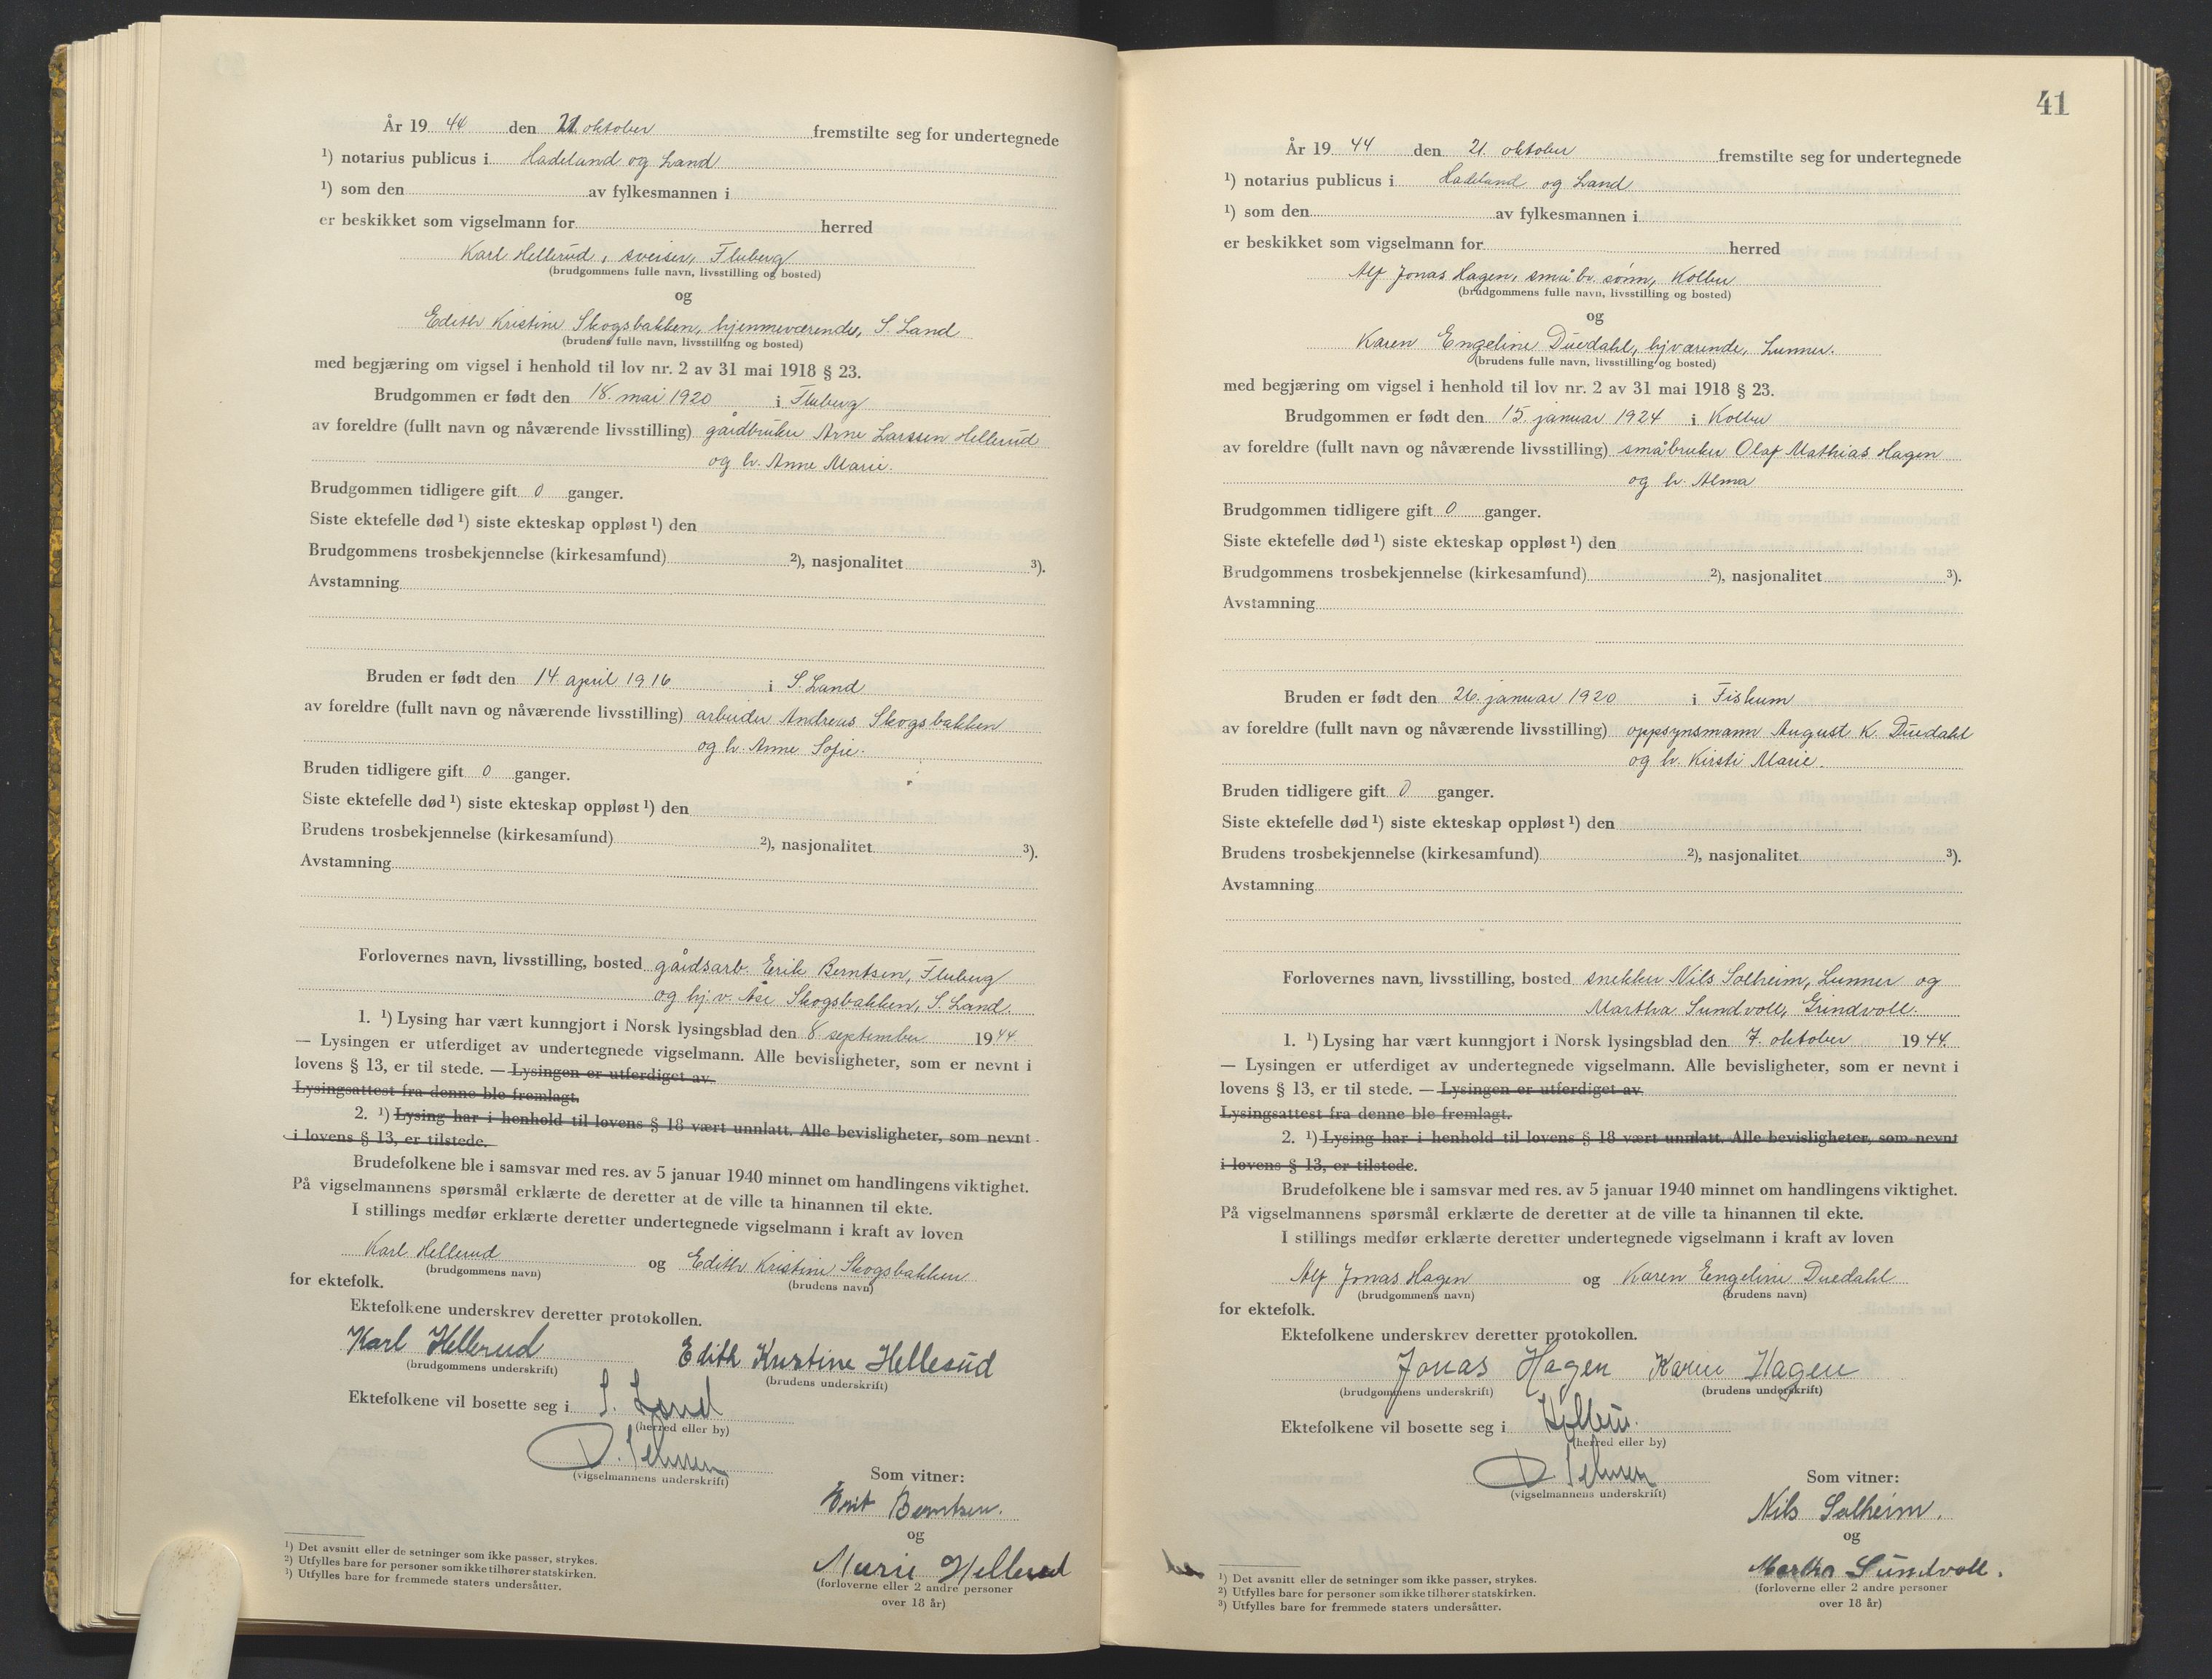 År 19 44 den 21 oktober fremstilte seg for undertegnede
¹) notarius publicus i Hadeland og Land
¹) som den av fylkesmannen i
er beskikket som vigselmann for herred
Karl Hellerud, sveiser, Fluberg
(brudgommens fulle navn, livsstilling og bosted)
og
Edith Kristine Skogsbakken, hjemmeværende, S. Land
(brudens fulle navn, livsstilling og bosted)
med begjæring om vigsel i henhold til lov nr. 2 av 31 mai 1918 § 23.
Brudgommen er født den 18. mai 1920 i Fluberg
av foreldre (fullt navn og nåværende livsstilling) gårdbruker Arne Larssen Hellerud
og h. Anne Marie.
Brudgommen tidligere gift 0 ganger.
Siste ektefelle død ¹) siste ekteskap oppløst ¹) den
Brudgommens trosbekjennelse (kirkesamfund) ²), nasjonalitet ³).
Avstamning
Bruden er født den 14 april 1916 i S. Land
av foreldre (fullt navn og nåværende livsstilling) arbeider Andreas Skogsbakken
og h. Anne Sofie.
Bruden tidligere gift 0 ganger.
Siste ektefelle død ¹) siste ekteskap oppløst ¹) den
Brudens trosbekjennelse (kirkesamfund) ²), nasjonalitet ³).
Avstamning
Forlovernes navn, livsstilling, bosted gårdsarb. Erik Berntsen, Fluberg
og hj.v. Åse Skogsbakken, S. Land.
1. ¹) Lysing har vært kunngjort i Norsk lysingsblad den 8 september 1944
— Lysingen er utferdiget av undertegnede vigselmann. Alle bevisligheter, som er nevnt i
lovens § 13, er til stede. — Lysingen er utferdiget av
Lysingsattest fra denne ble fremlagt.
2. ¹) Lysing har i henhold til lovens § 18 vært unnlatt. Alle bevisligheter, som nevnt
i lovens § 13, er tilstede.
Brudefolkene ble i samsvar med res. av 5 januar 1940 minnet om handlingens viktighet.
På vigselmannens spørsmål erklærte de deretter at de ville ta hinannen til ekte.
I stillings medfør erklærte deretter undertegnede vigselmann i kraft av loven
Karl Hellerud og Edith Kristine Skogsbakken
(brudgommens navn) (brudens navn)
for ektefolk.
Ektefolkene underskrev deretter protokollen.
Karl Hellerud Edith Kristine Hellerud
(brudgommens underskrift) (brudens underskrift)
Ektefolkene vil bosette seg i S. Land
(herred eller by)
(vigselmannens underskrift)
Som vitner:
Erik Berntsen.
og
Marie Hellerud
(forloverne eller 2 andre personer
over 18 år)
¹) Det avsnitt eller de setninger som ikke passer, strykes.
²) Utfylles bare for personer som ikke tilhører statskirken.
³) Utfylles bare for fremmede staters undersåtter.
41
År 19 44 den 21. oktober fremstilte seg for undertegnede
¹) notarius publicus i Hadeland og Land
¹) som den av fylkesmannen i
er beskikket som vigselmann for herred
Alf Jonas Hagen, småbr. sønn, Kolbu
(brudgommens fulle navn, livsstilling og bosted)
og
Karen Engeline Duedahl, hjværende, Lunner.
(brudens fulle navn, livsstilling og bosted)
med begjæring om vigsel i henhold til lov nr. 2 av 31 mai 1918 § 23.
Brudgommen er født den 15 januar 1924 i Kolbu
av foreldre (fullt navn og nåværende livsstilling) småbruker Olaf Mathias Hagen
og h. Alma
Brudgommen tidligere gift 0 ganger.
Siste ektefelle død ¹) siste ekteskap oppløst ¹) den
Brudgommens trosbekjennelse (kirkesamfund) ²), nasjonalitet ³).
Avstamning
Bruden er født den 26. januar 1920 i Fiskum
av foreldre (fullt navn og nåværende livsstilling) oppsynsmann August K. Duedahl
og h. Kirsti Marie.
Bruden tidligere gift 0 ganger.
Siste ektefelle død ¹) siste ekteskap oppløst ¹) den
Brudens trosbekjennelse (kirkesamfund) ²), nasjonalitet ³).
Avstamning
Forlovernes navn, livsstilling, bosted snekker Nils Solheim, Lunner og
Martha Sundvoll, Grindvoll.
1. ¹) Lysing har vært kunngjort i Norsk lysingsblad den 7. oktober 1944.
— Lysingen er utferdiget av undertegnede vigselmann. Alle bevisligheter, som er nevnt i
lovens § 13, er til stede. — Lysingen er utferdiget av
Lysingsattest fra denne ble fremlagt.
2. ¹) Lysing har i henhold til lovens § 18 vært unnlatt. Alle bevisligheter, som nevnt
i lovens § 13, er tilstede.
Brudefolkene ble i samsvar med res. av 5 januar 1940 minnet om handlingens viktighet.
På vigselmannens spørsmål erklærte de deretter at de ville ta hinannen til ekte.
I stillings medfør erklærte deretter undertegnede vigselmann i kraft av loven
Alf Jonas Hagen og Karen Engeline Duedahl
(brudgommens navn) (brudens navn)
for ektefolk.
Ektefolkene underskrev deretter protokollen.
Jonas Hagen Karen Hagen
(brudgommens underskrift) (brudens underskrift)
Ektefolkene vil bosette seg i Kolbu.
(herred eller by)
(vigselmannens underskrift)
Som vitner:
Nils Solheim.
og
Martha Sundvoll.
(forloverne eller 2 andre personer
over 18 år)
¹) Det avsnitt eller de setninger som ikke passer, strykes.
²) Utfylles bare for personer som ikke tilhører statskirken.
³) Utfylles bare for fremmede staters undersåtter.